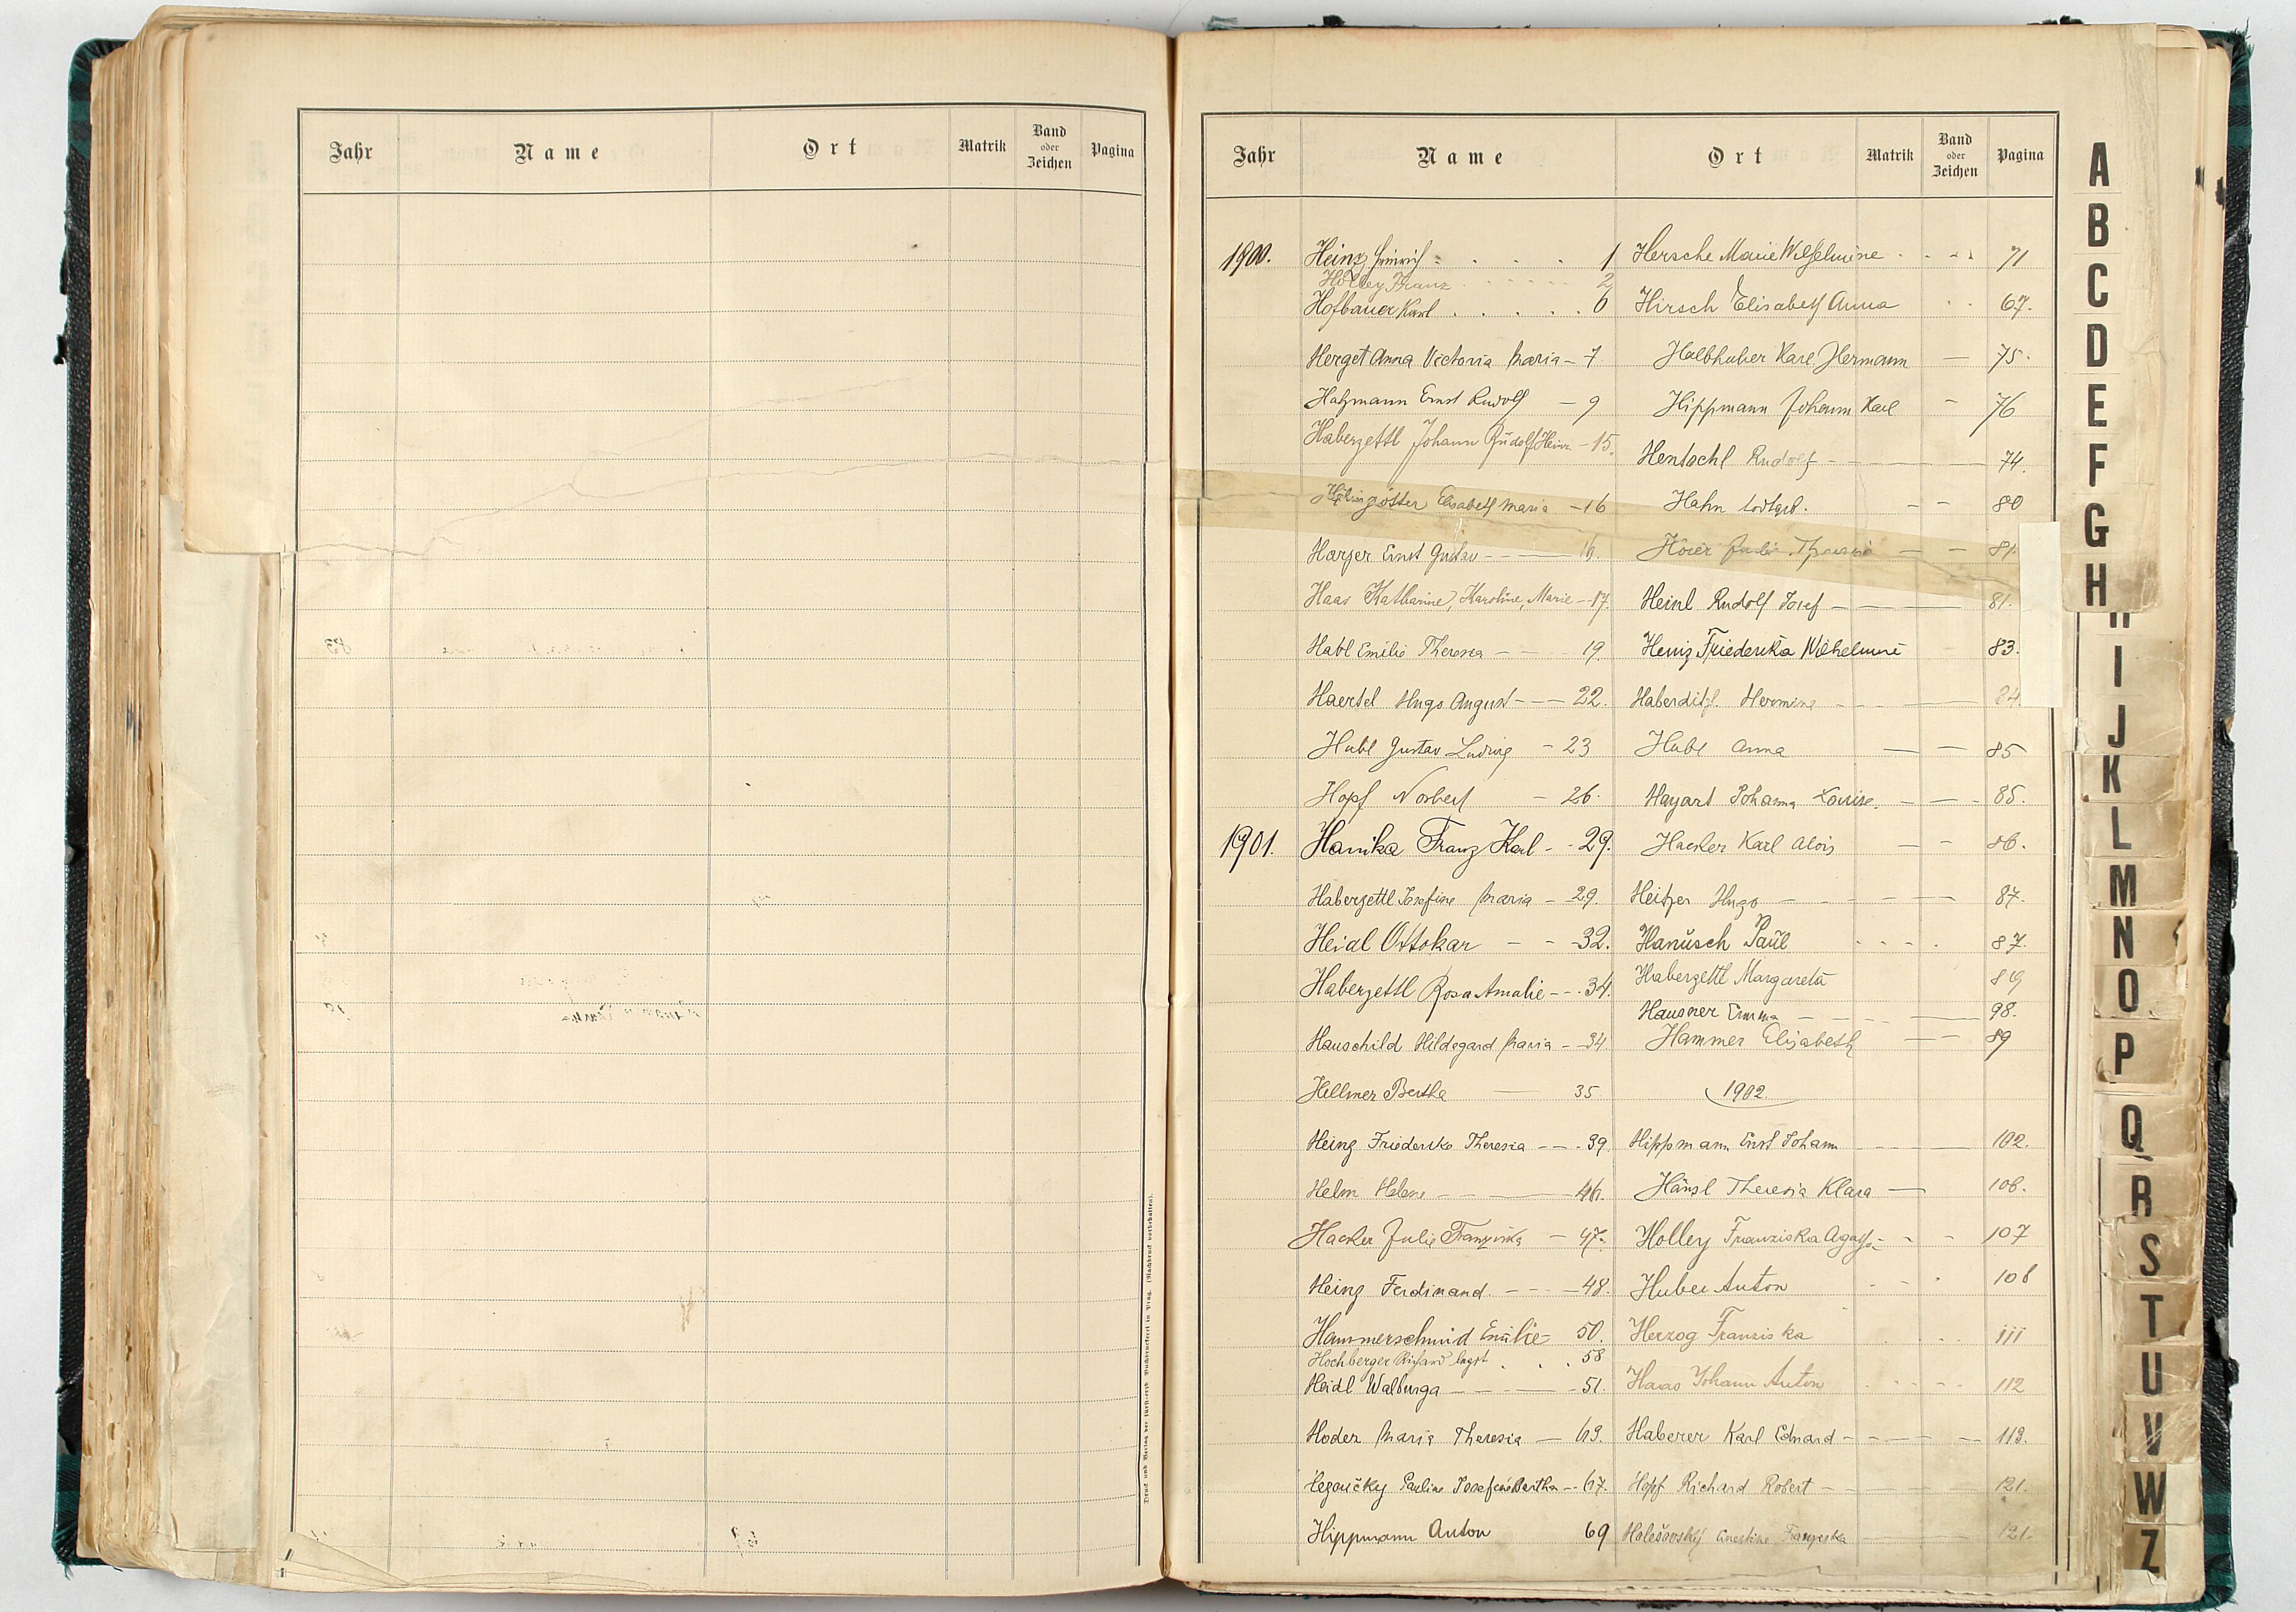 Jahr Name Ort Matrik Band oder Zeichen Pagina
Druck und Verlag der fürsterzb. Buchdruckerei in Prag. (Nachdruck vorbehalten).
Jahr Name Ort Matrik Band oder Zeichen Pagina
1900. Heinz Heinrich 1 Hersche Marie Wilhelmine 71
Holley Franz 2
Hofbauer Karl 6 Hirsch Elisabeth Anna 67.
Herget Anna Victoria Maria – 7 Halbhuber Karl Hermann — 75.
Holzmann Ernst Rudolf – 9 Hippmann Johann Karl – 76
Haberzettl Johann Rudolf Heinr. – 15.
Hentschl Rudolf – 74.
Elisabeth Maria – 16 Hahn todtgeb. – – 80
Harzer Ernst Gustav – 16. Hoier Theresia – – 81.
Haas Katharine, Karoline, Marie – 17. Heinl Rudolf Josef – 81.
Habl Emilie Theresia – 19. Heinz Friederika Wilhelmine 83.
Haertel Hugo August – 22. Haberditzl Hermine – 84.
Hubl Gustav Ludwig – 23 Hubl Anna – – 85
Hopf Norbert – 26. Johanna Louise. – – 85.
1901. Hanika Franz Karl – 29. Hacker Karl Alois – – 86.
Haberzettl Josefine Maria – 29. Heitzer Hugo – 87.
Heidl Ottokar – – 32. Hanusch Paul 87.
Haberzettl Rosa Amalie – 34. Haberzettl Margareta 89
Hausner Emma – 98.
Hauschild Hildegard Maria – 34 Hammer Elisabeth – 89
Hellmer Bertha — 35 1902.
Heinz Friederike Theresia – 39. Hippmann Ernst Johann – 102.
Helm Helene – 46. Hänsl Theresia Klara — 106.
Hacker Julie Franziska – 47. Holley Franziska Agatha – 107
Heinz Ferdinand – 48. Huber Anton 108
Hammerschmid Emilie – 50. Herzog Franziska 111
Hochberger Richard 58
Heidl Walburga – 51. Haas Johann Anton 112
Hoder Maria Theresia – 63. Haberer Karl Eduard – 113.
Josefine Bertha – 67. Hopf Richard Robert – 121.
Hippmann Anton 69 Holešovský Franziska 121.
A
B
C
D
E
F
G
H
I
J
K
L
M
N
O
P
Q
R
S
T
U
V
W
Z